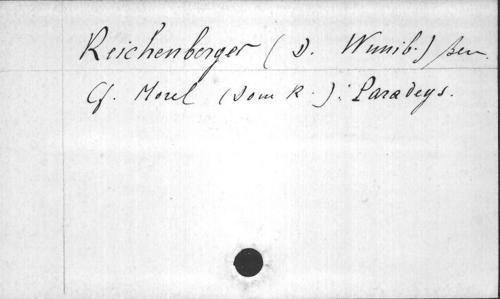 Reichenberger (D. Wunib.) ben.
Cf. Morel (Dom R.): Paradeys.